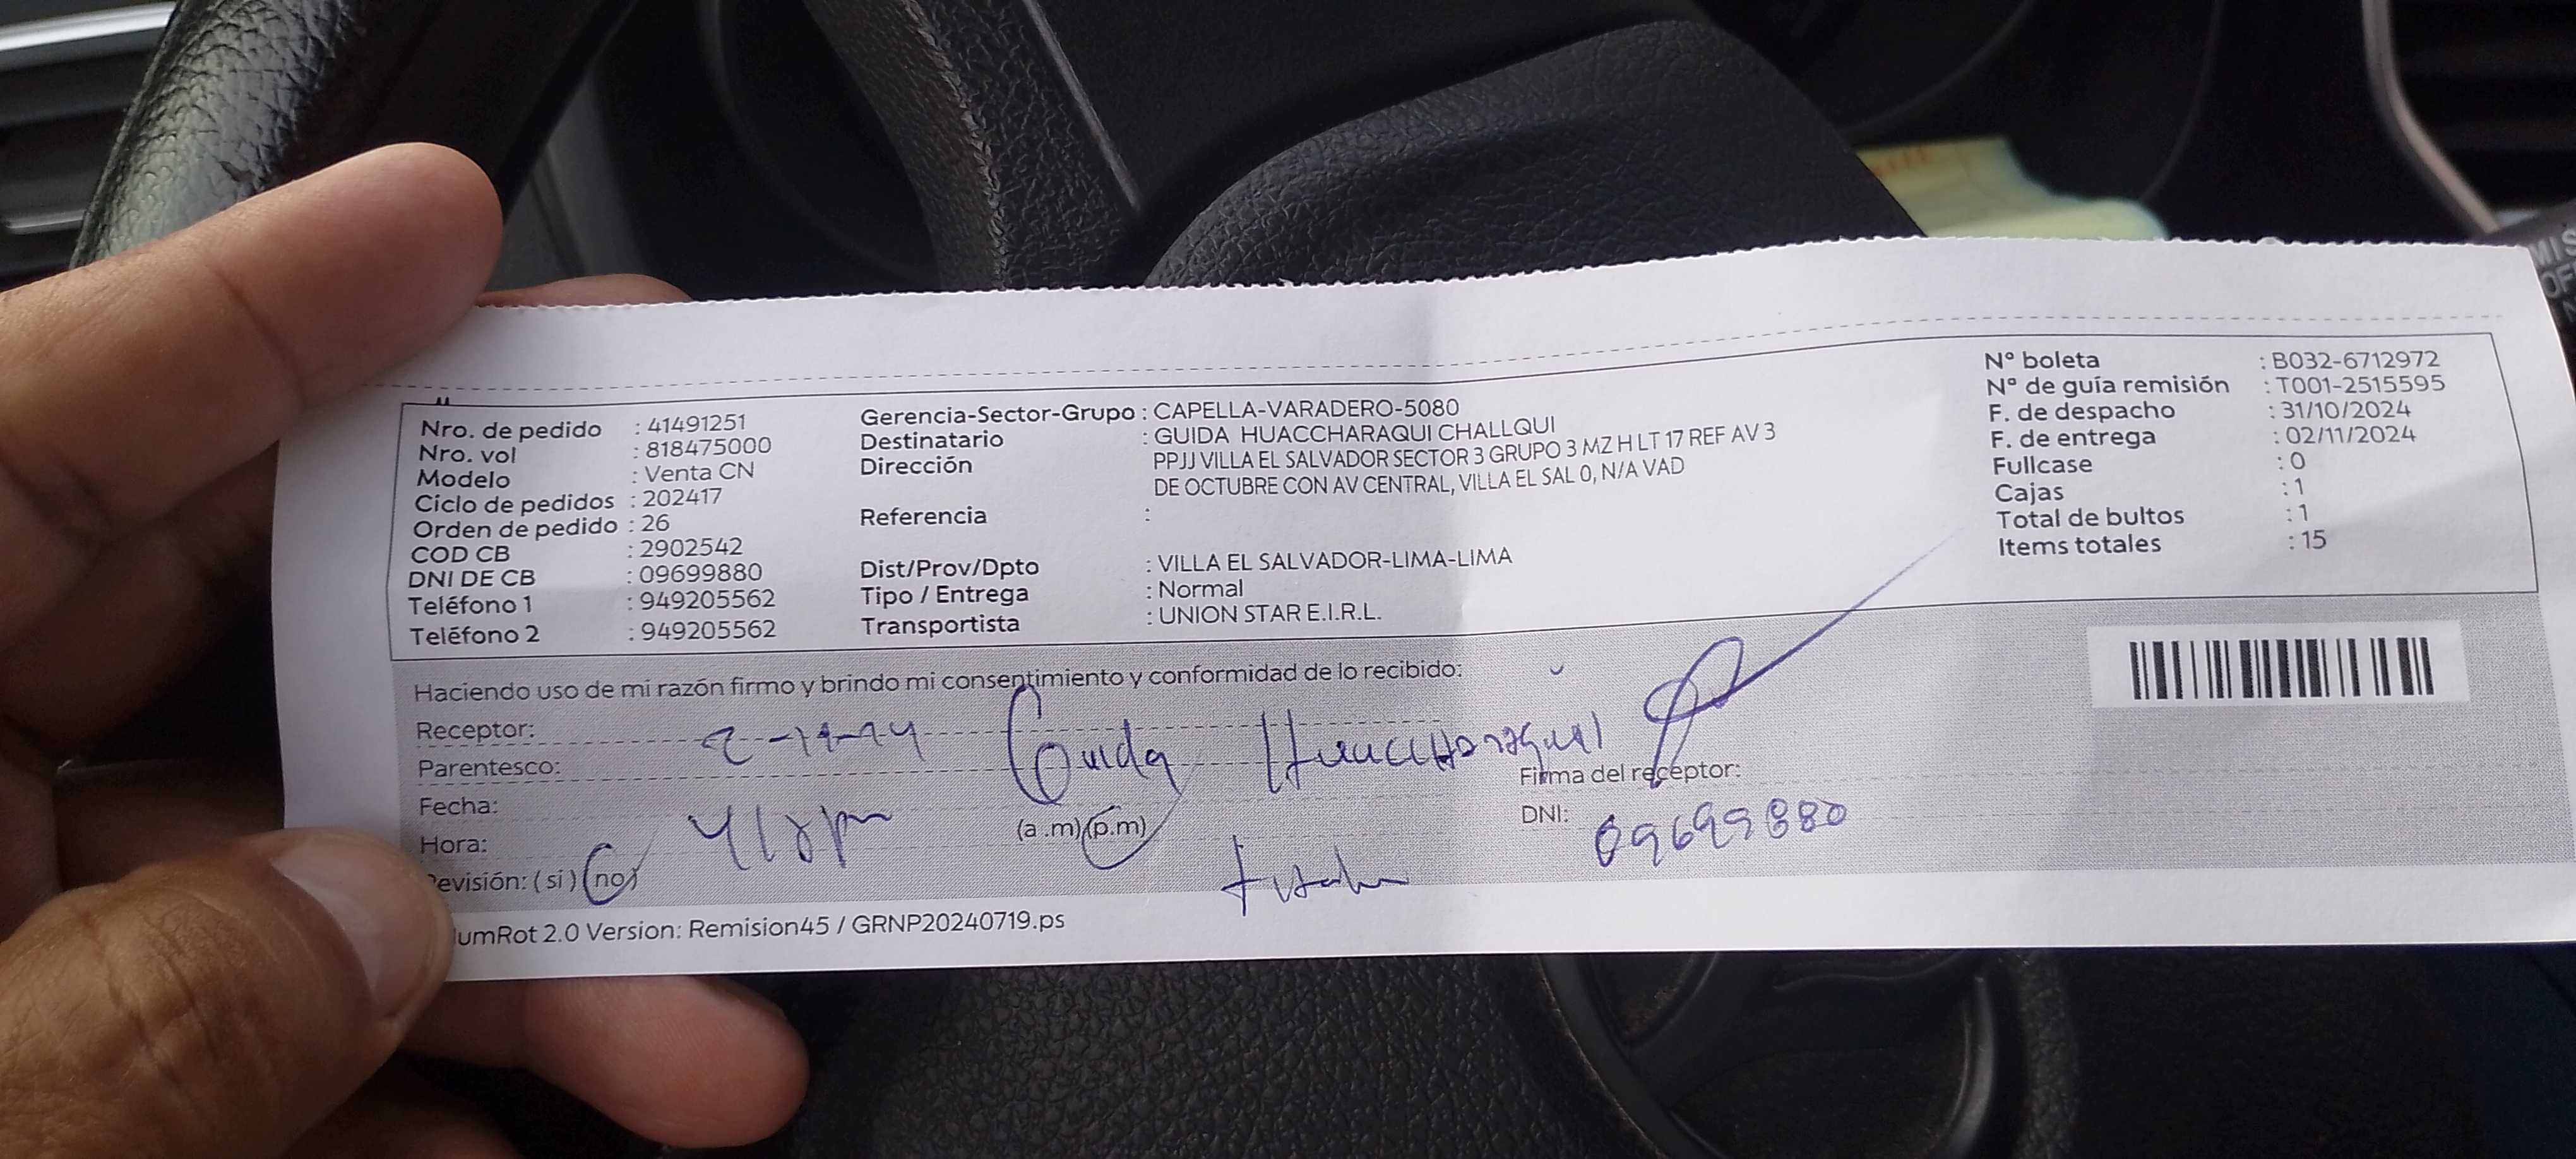 Nro. de pedido : 41491251
Nro. vol : 818475000
Modelo : Venta CN
Ciclo de pedidos : 202417
Orden de pedido : 26
COD CB : 2902542
DNI DE CB : 09699880
Teléfono 1 : 949205562
Teléfono 2 : 949205562
Gerencia-Sector-Grupo : CAPELLA-VARADERO-5080
Destinatario : GUIDA HUACCHARAQUI CHALLQUI
Dirección PPJJ VILLA EL SALVADOR SECTOR 3 GRUPO 3 MZ H LT 17 REF AV 3
DE OCTUBRE CON AV CENTRAL, VILLA EL SAL 0, N/A VAD
Referencia :
Dist/Prov/Dpto : VILLA EL SALVADOR-LIMA-LIMA
Tipo / Entrega : Normal
Transportista : UNION STAR E.I.R.L.
N° boleta : B032-6712972
N° de guía remisión : T001-2515595
F. de despacho : 31/10/2024
F. de entrega : 02/11/2024
Fullcase : 0
Cajas : 1
Total de bultos : 1
Items totales : 15
Haciendo uso de mi razón firmo y brindo mi consentimiento y conformidad de lo recibido:
Receptor: Guida Huaccharaqui
Parentesco:
Firma del receptor:
Fecha:
(a .m) (p.m)
DNI: 09699880
Hora:
Revisión: ( si ) (no)
umRot 2.0 Version: Remision45 / GRNP20240719.ps